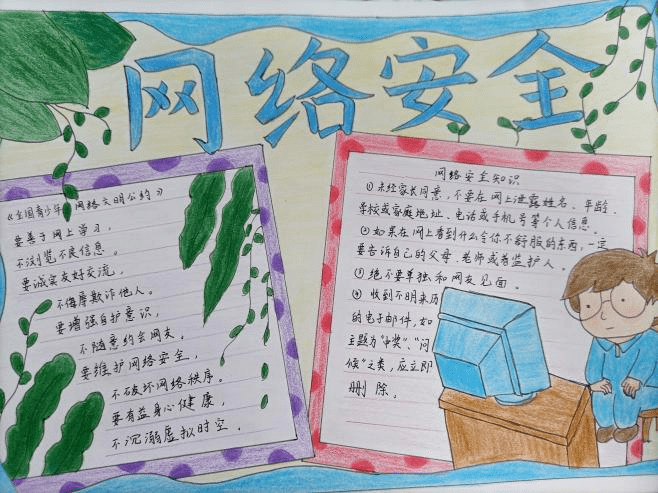 网络安全
《全国青少年网络文明公约》
要善于网上学习，
不浏览不良信息。
要诚实友好交流，
不侮辱欺诈他人。
要增强自护意识，
不随意约会网友。
要维护网络安全，
不破坏网络秩序。
要有益身心健康，
不沉溺虚拟时空。
网络安全知识
①未经家长同意，不要在网上泄露姓名、年龄、
学校或家庭地址、电话或手机号等个人信息。
②如果在网上看到什么令你不舒服的东西，一定
要告诉自己的父母、老师或者监护人。
③绝不要单独和网友见面。
④收到不明来历
的电子邮件，如
主题为“中奖”、“问
候”之类，应立即
删除。